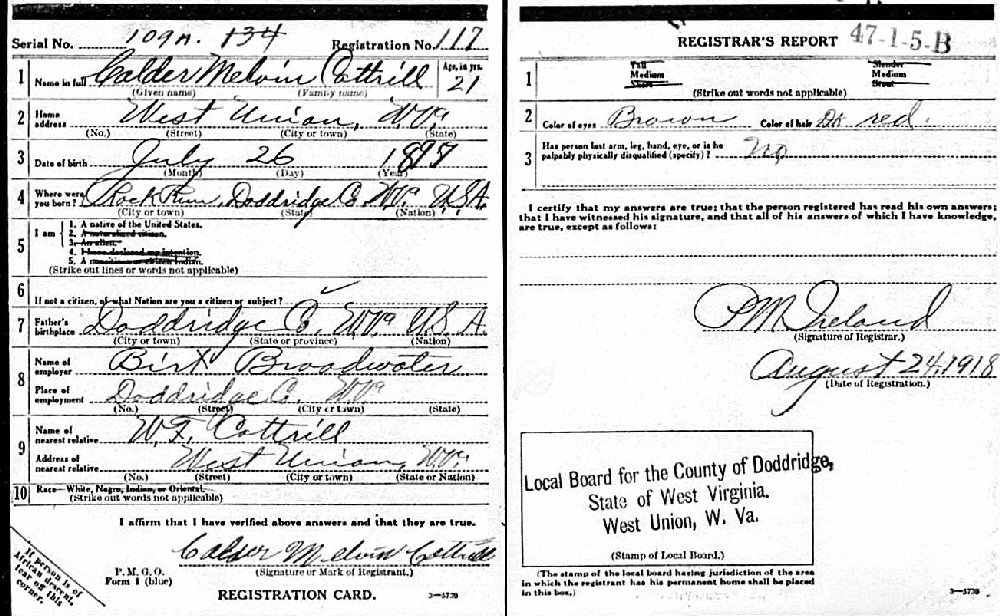 Serial No. 134 Registration No. 117
1 Name in full Calder Melvin Cottrill Age, in yrs. 21
(Given name) (Family name)
2 Home address West Union, W Va
(No.) (Street) (City or town) (State)
3 Date of birth July 26 1897
(Month) (Day) (Year)
4 Where were you born? Rock Run, Doddridge Co. W Va U.S.A.
(City or town) (State) (Nation)
5 I am 1. A native of the United States.
2. A naturalized citizen.
3. An alien.
4. I have declared my intention.
5. A noncitizen or citizen Indian.
(Strike out lines or words not applicable)
6 If not a citizen, of what Nation are you a citizen or subject?
7 Father's birthplace Doddridge Co. W Va U.S.A.
(City or town) (State or province) (Nation)
8 Name of employer Birt Broadwater
Place of employment Doddridge C. W Va
(No.) (Street) (City or town) (State)
9 Name of nearest relative W. F. Cottrill
Address of nearest relative West Union, W Va.
(No.) (Street) (City or town) (State or Nation)
10 Race—White, Negro, Indian, or Oriental.
(Strike out words not applicable)
I affirm that I have verified above answers and that they are true.
Calder Melvin Cottrill
P. M. G. O.
Form 1 (blue) (Signature or Mark of Registrant.)
REGISTRATION CARD. 3—5739
If person is of
African descent,
tear off this
corner.
REGISTRAR'S REPORT 47-1-5-B
1 Tall Slender
Medium Medium
Short Stout
(Strike out words not applicable)
2 Color of eyes Brown Color of hair Dk red.
3 Has person lost arm, leg, hand, eye, or is he palpably physically disqualified (specify)? No
I certify that my answers are true; that the person registered has read his own answers;
that I have witnessed his signature, and that all of his answers of which I have knowledge,
are true, except as follows:
P M Ireland
(Signature of Registrar.)
August 24, 1918
(Date of Registration.)
Local Board for the County of Doddridge,
State of West Virginia.
West Union, W. Va.
(Stamp of Local Board.)
(The stamp of the local board having jurisdiction of the area
in which the registrant has his permanent home shall be placed
in this box.) 3—5739